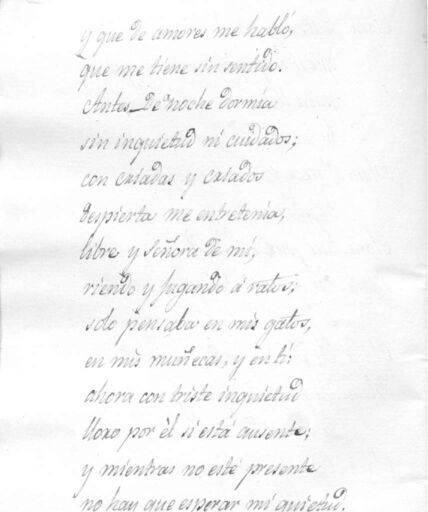 y que de amores me habló,
que me tiene sin sentido.
Antes de noche dormía
sin inquietud ni cuidados;
con criadas y criados
despierta me entretenía,
libre y señora de mí,
riendo y jugando á ratos;
solo pensaba en mis gatos,
en mis muñecas, y en tí:
ahora con triste inquietud
lloro por él si está ausente;
y mientras no esté presente
no hay que esperar mi quietud.